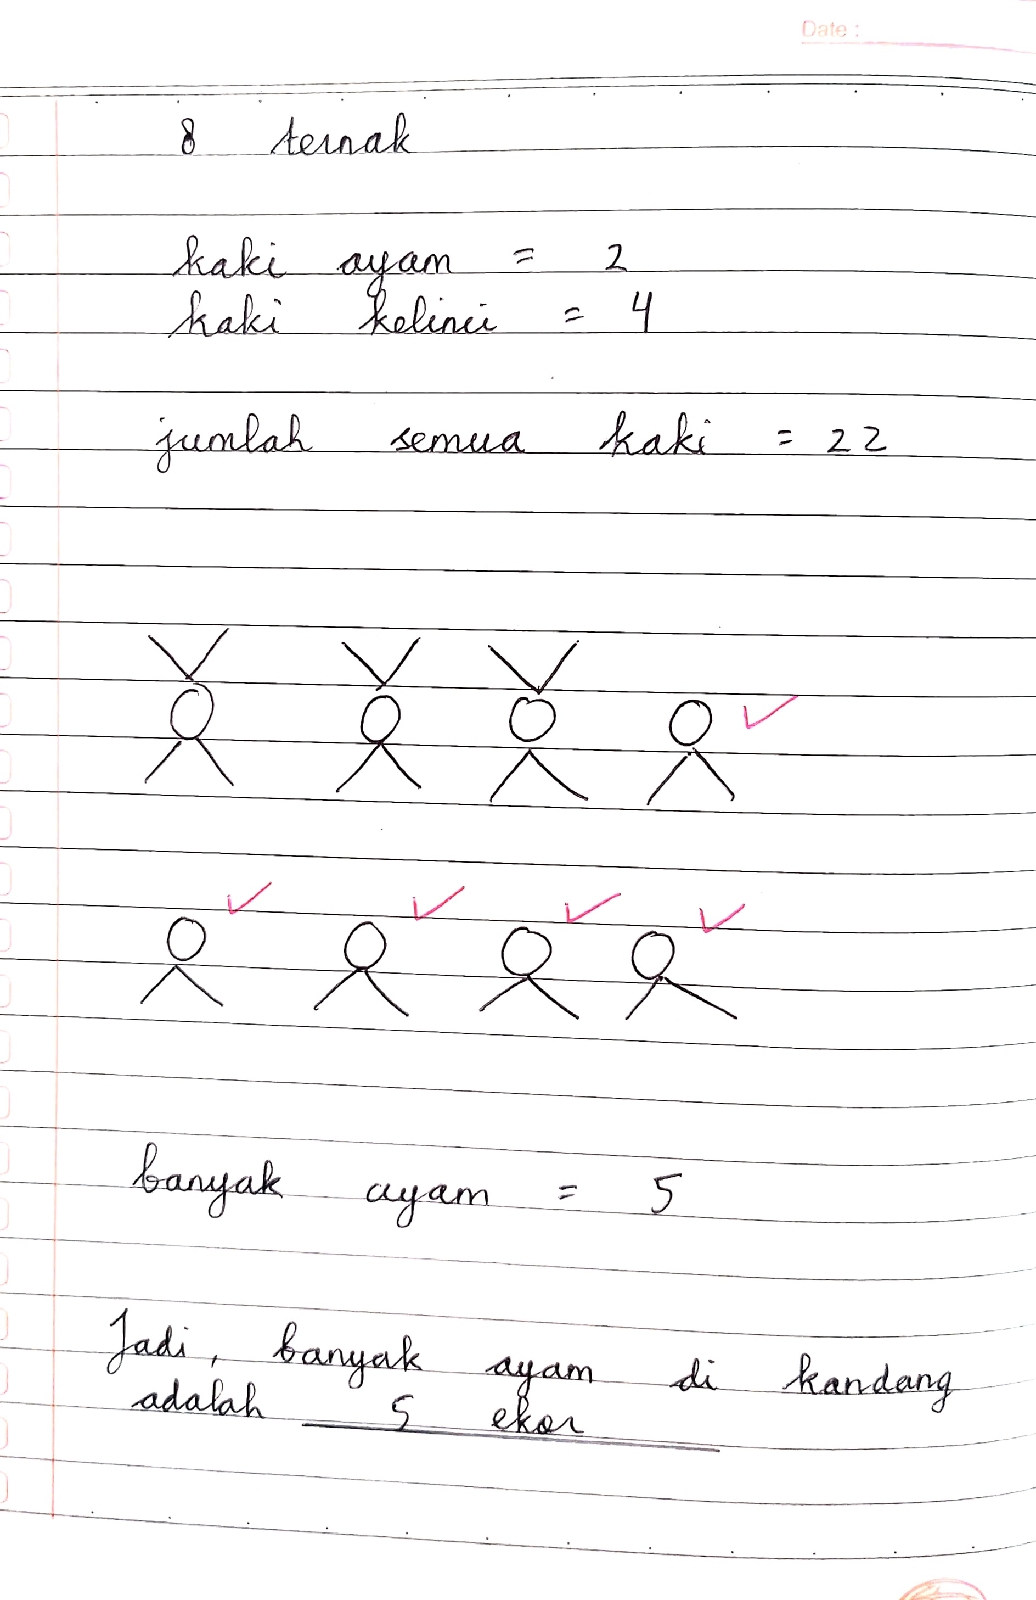 Date :
8 ternak
kaki ayam = 2
kaki kelinci = 4
jumlah semua kaki = 22
banyak ayam = 5
Jadi, banyak ayam di kandang
adalah 5 ekor